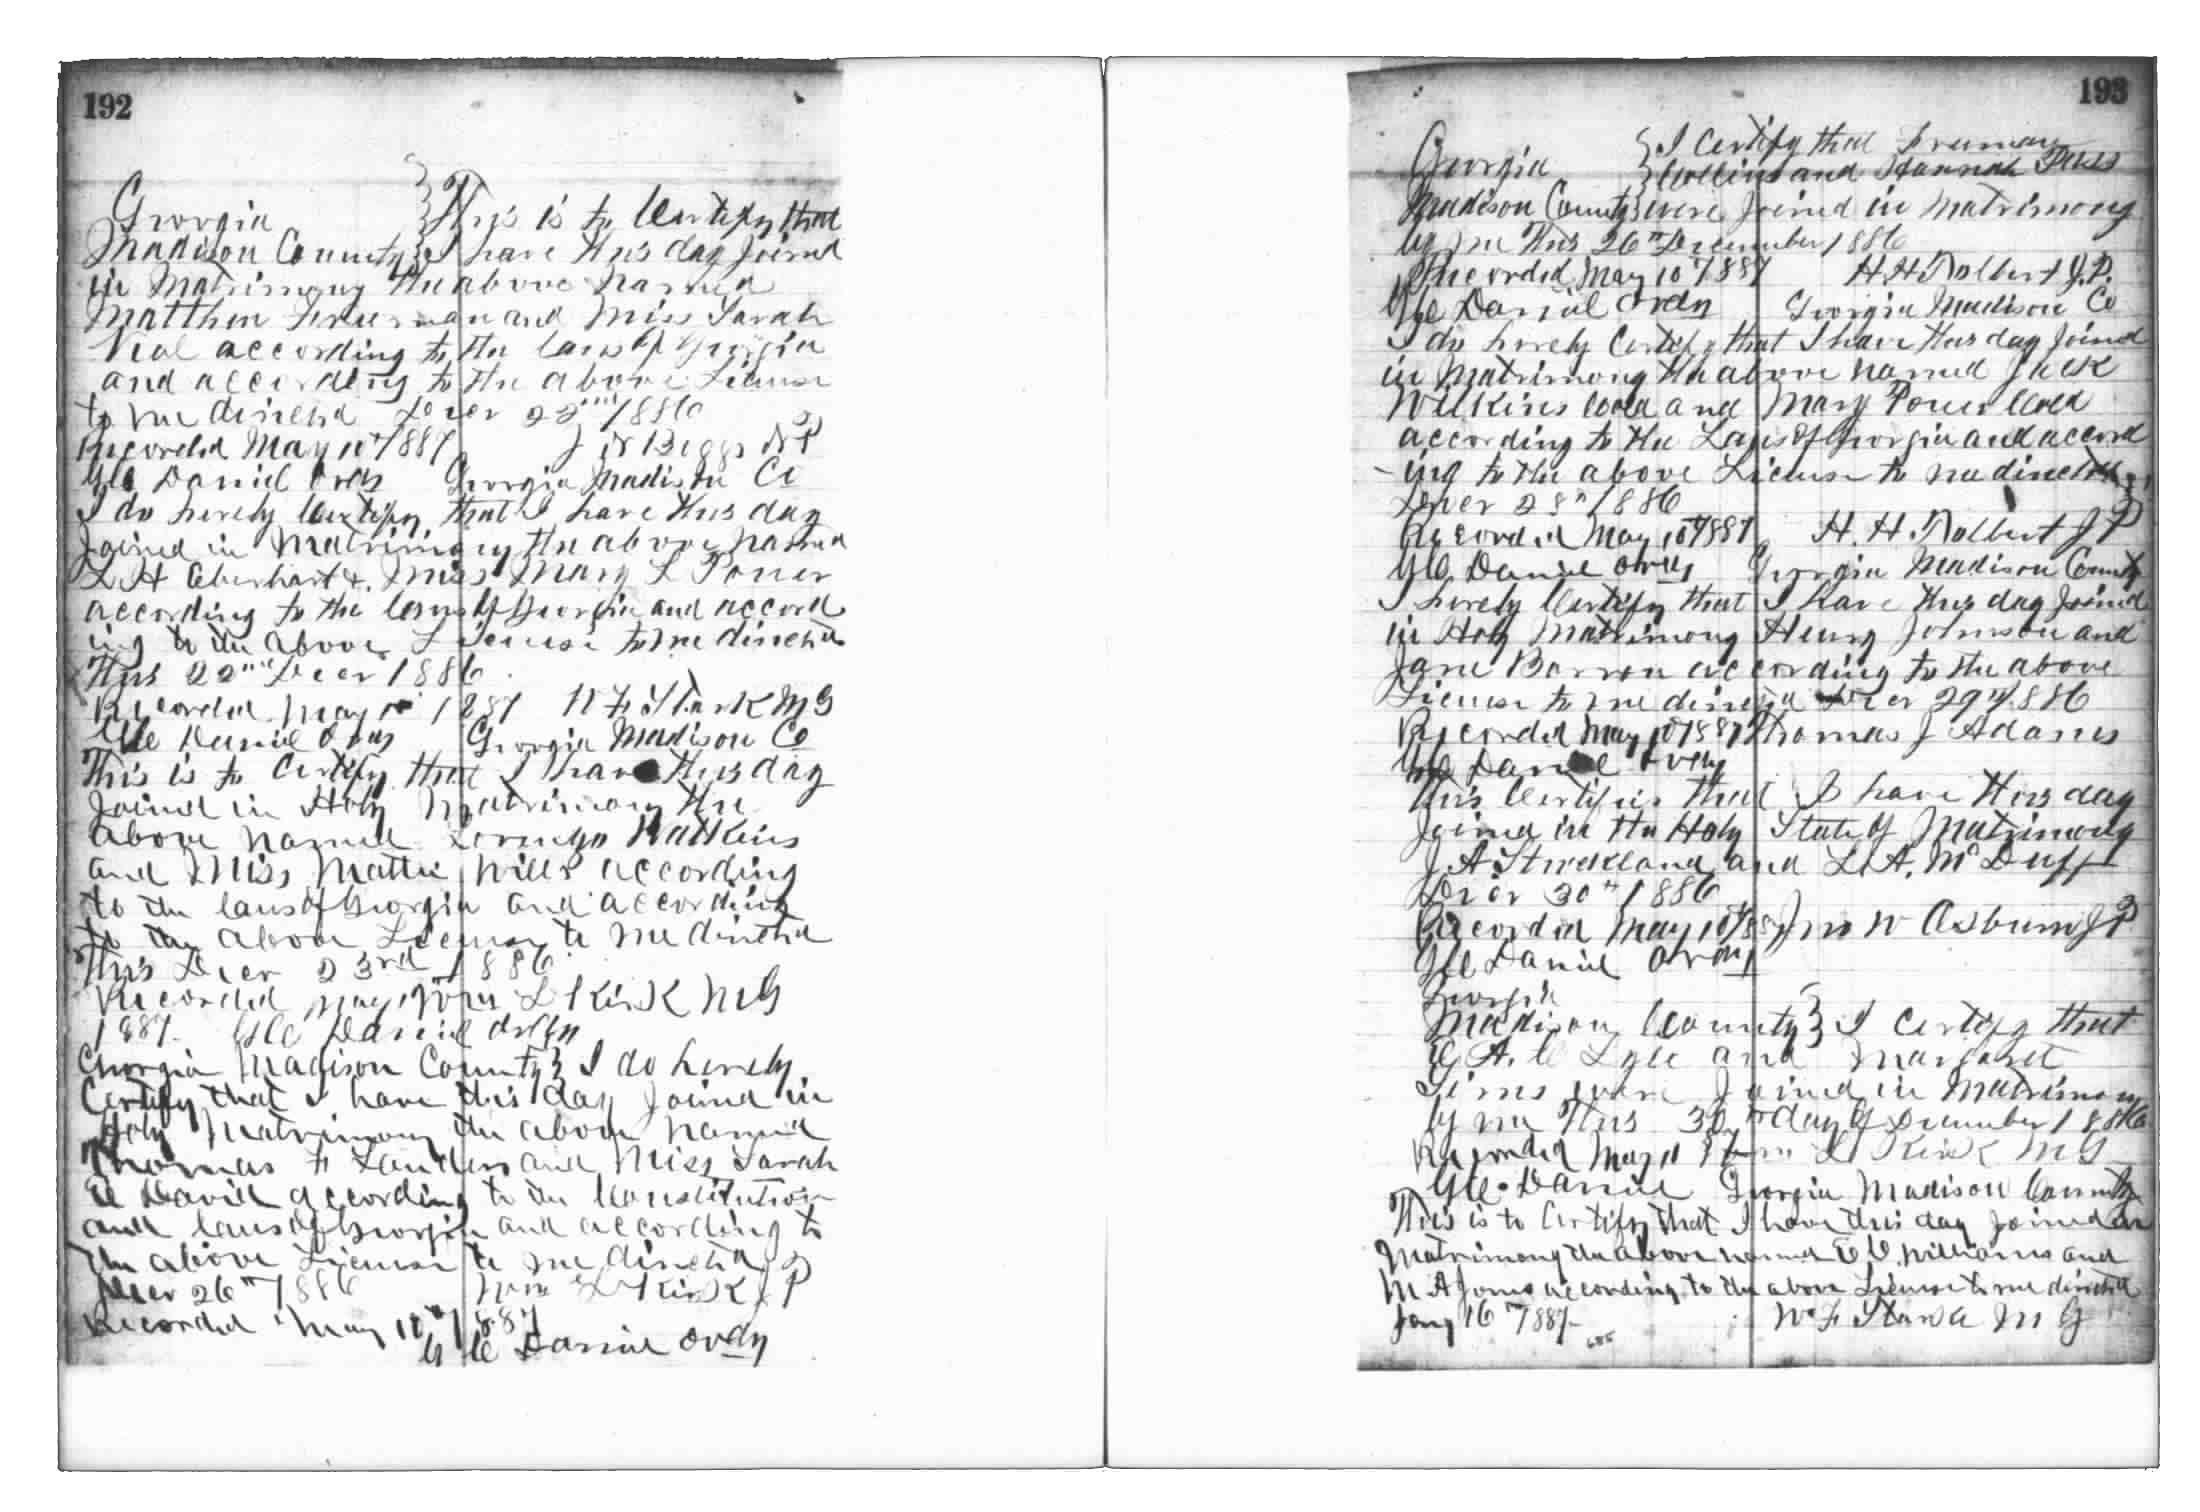 192
Georgia } This is to Certify that
Madison County } I have this day Joined
in Matrimony the above named
Matthew Freeman and Miss Sarah
Vial according to the laws of Georgia
and according to the above License
to me directed Decr 22nd 1886
Recorded May 10th 1887 J N Beggs N P
G C Daniel Ordy Georgia Madison Co
I do hereby Certify that I have this day
Joined in Matrimony the above named
L H Eberhart & Miss Mary L Power
according to the laws of Georgia and accord
ing to the above License to me directed
This 22nd Decr 1886
Recorded May 10 1887 W F Stark M G
G C Daniel Ordy Georgia Madison Co
This is to Certify that I have this day
Joined in Holy Matrimony the
above named Watkins
and Miss Mattie Wills according
to the laws of Georgia and according
to the above License to me directed
This Decr 23rd 1886
Recorded May 10 Wm L Kirk M G
1887 G C Daniel Ordy
Georgia Madison County } I do hereby
Certify that I have this day Joined in
Holy Matrimony the above named
Thomas F Landers and Miss Sarah
E David according to the Constitution
and laws of Georgia and according to
the above License to me directed
Decr 26th 1886 Wm L Kirk J P
Recorded May 10th 1887
G C Daniel Ordy
193
Georgia } I Certify that Freeman
} Collins and Hannah
Madison County } were Joined in Matrimony
by me This 26th December 1886
Recorded May 10th 1887 H. H. Tolbert J. P.
G C Daniel Ordy Georgia Madison Co
I do hereby Certify that I have this day Joined
in Matrimony the above named Jack
Wilkins Cold and Mary Power Cold
according to the Laws of Georgia and accord
-ing to the above License to me directed
Decr 28th 1886
Recorded May 10th 1887 H. H. Tolbert J P
G C Daniel Ordy Georgia Madison County
I hereby Certify that I have this day Joined
in Holy Matrimony Henry Johnson and
Jane Barron according to the above
License to me directed Decr 29th 1886
Recorded May 10th 1887 Thomas J Adams
G C Daniel Ordy
This Certifies that I have this day
Joined in the Holy State of Matrimony
J. A. Strickland and L. A. McDuff
Decr 30th 1886
Recorded May 10th 1887 Jno W Asburn J P
G C Daniel Ordy
Georgia
Madison County } I Certify that
G. A. C Lyle and Margaret
Sims were Joined in Matrimony
by me This 30th day of December 1886
Recorded May 10 87 Wm L Kirk M G
G C Daniel Georgia Madison County
This is to Certify that I have this day Joined in
Matrimony the above named E C Williams and
M A Jones according to the above License to me directed
Jany 16th 1887 W F Stark M G